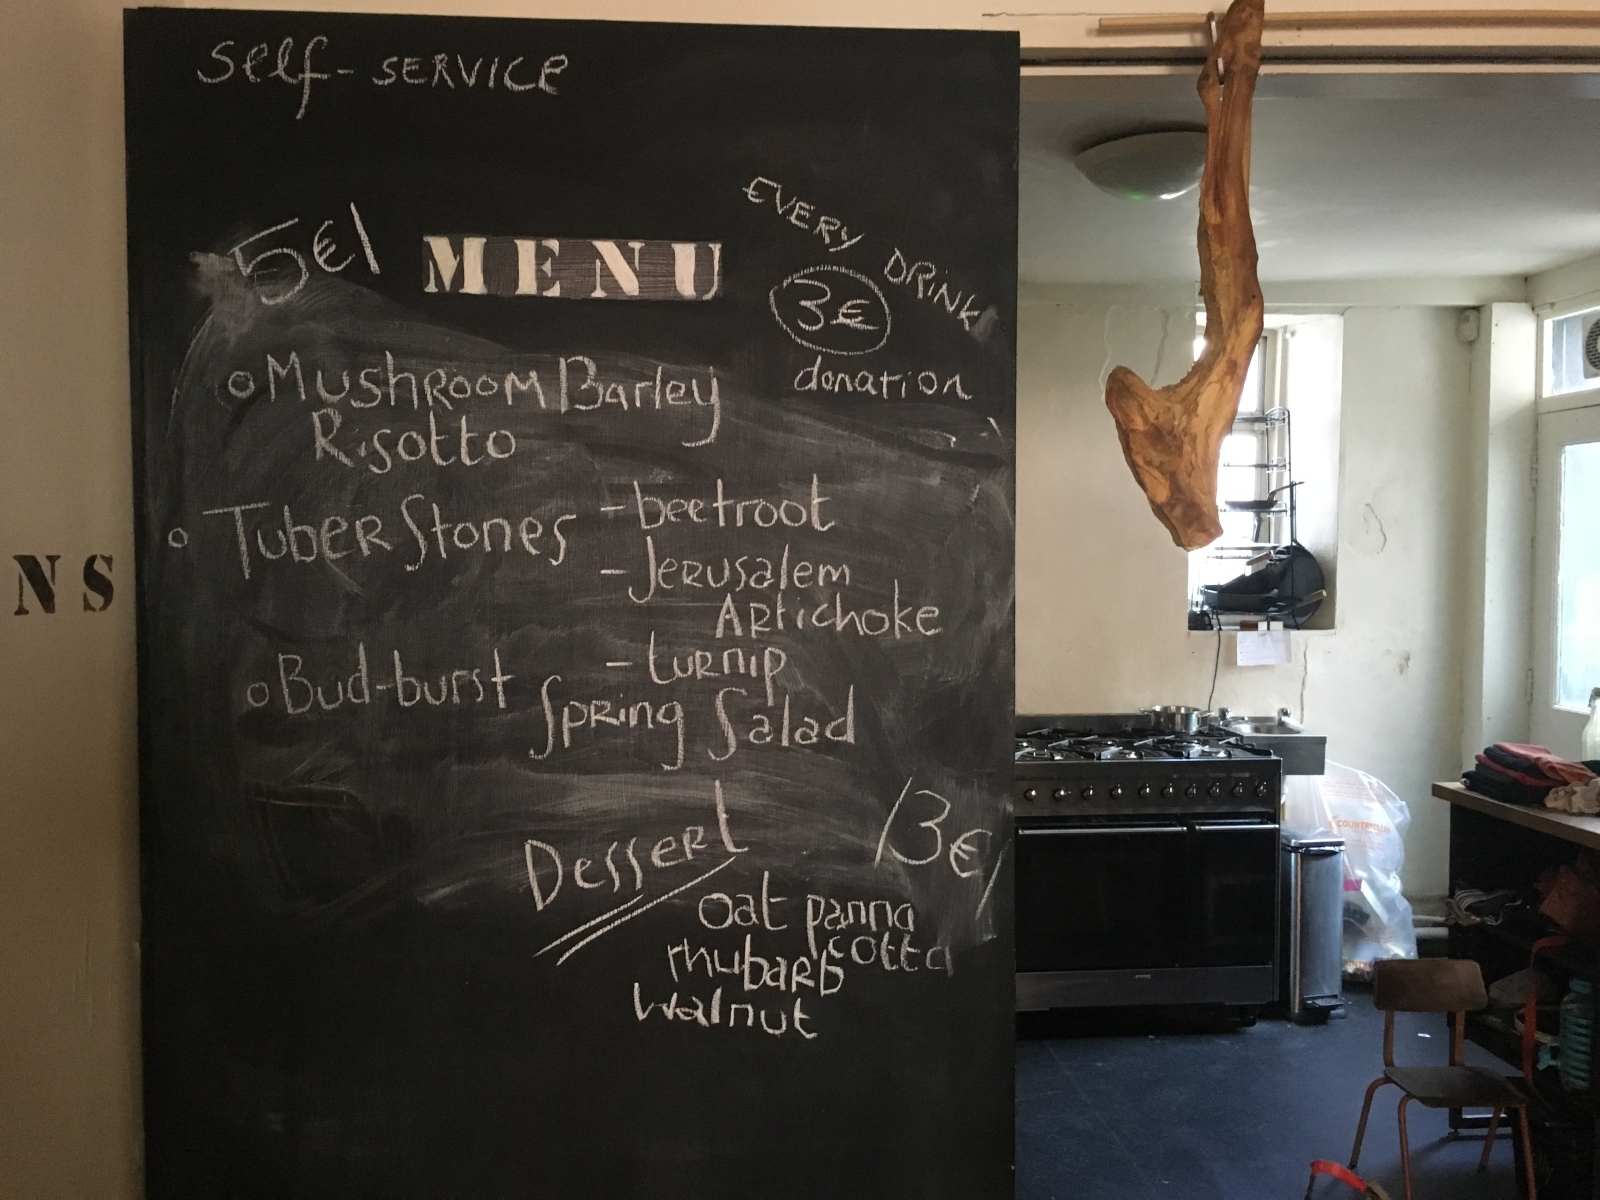 self-SERVICE
5€/
MENU
EVERY DRINK
3€
donation
Mushroom Barley
Risotto
Tuber Stones
-beetroot
-Jerusalem
Artichoke
-turnip
Bud-burst
Spring Salad
Dessert
/3€/
oat panna
cotta
rhubarb
walnut
NS